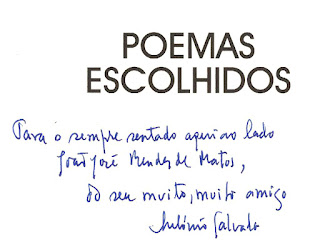 POEMAS
ESCOLHIDOS
Para o sempre sentado aqui ao lado
José Mendes de Matos,
do seu muito, muito amigo
António Salvado